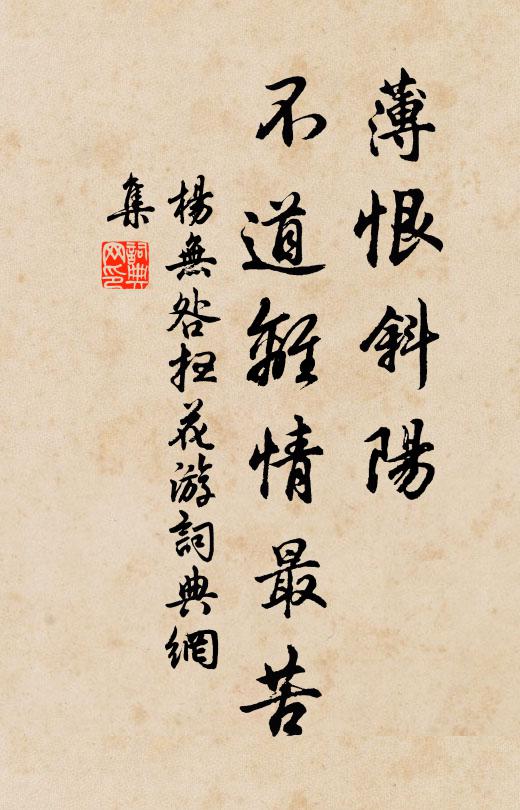 薄恨斜陽
不道離情最苦
楊無咎掃花游詞典網
集
詞典網印